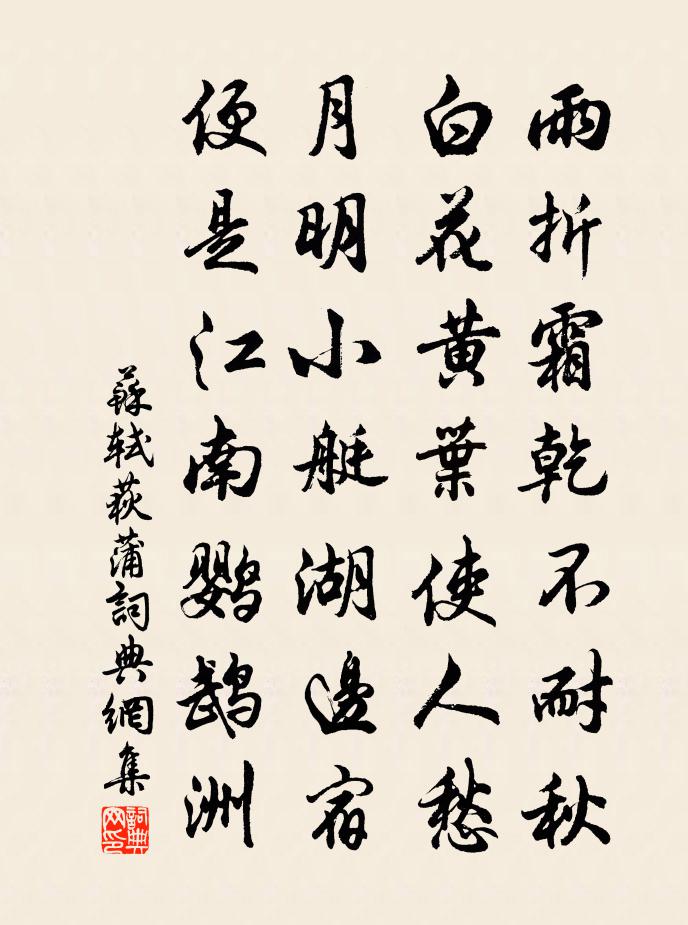 雨折霜乾不耐秋
白花黃葉使人愁
月明小艇湖邊宿
便是江南鸚鵡洲
蘇軾荻蒲詞典網集
詞典網印